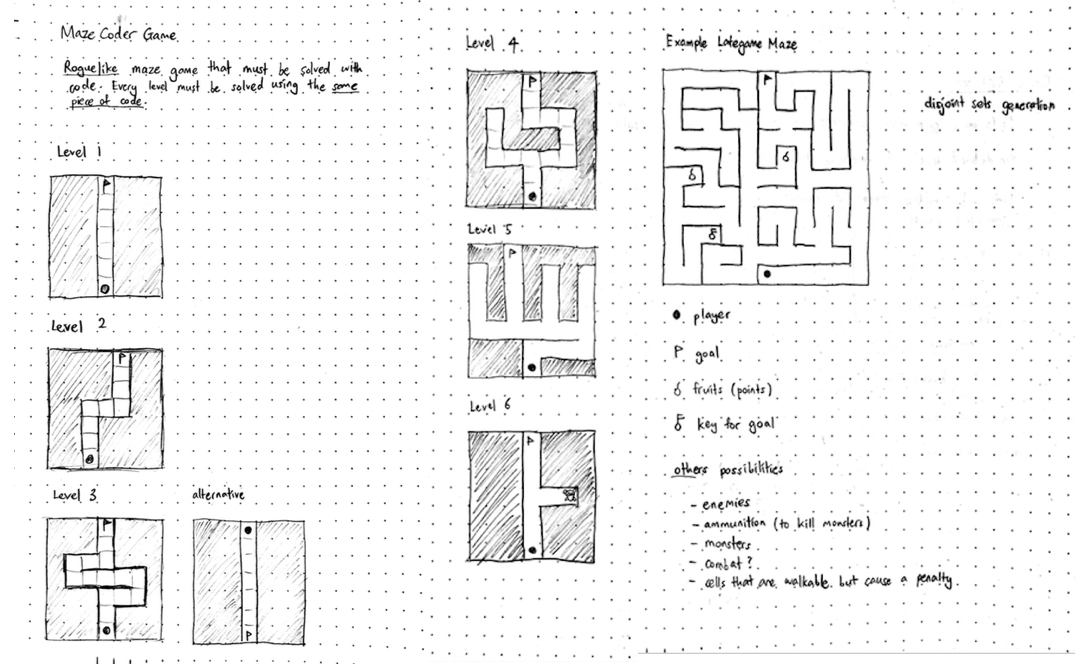 Maze Coder Game.
Roguelike maze game that must be solved with
code. Every level must be solved using the same
piece of code.
Level 1
Level 2
Level 3
alternative
Level 4
Level 5
Level 6
Example Lategame Maze
disjoint sets generation
player
goal
fruits (points)
key for goal
others possibilities
- enemies
- ammunition (to kill monsters)
- monsters
- combat?
- cells that are walkable but cause a penalty.